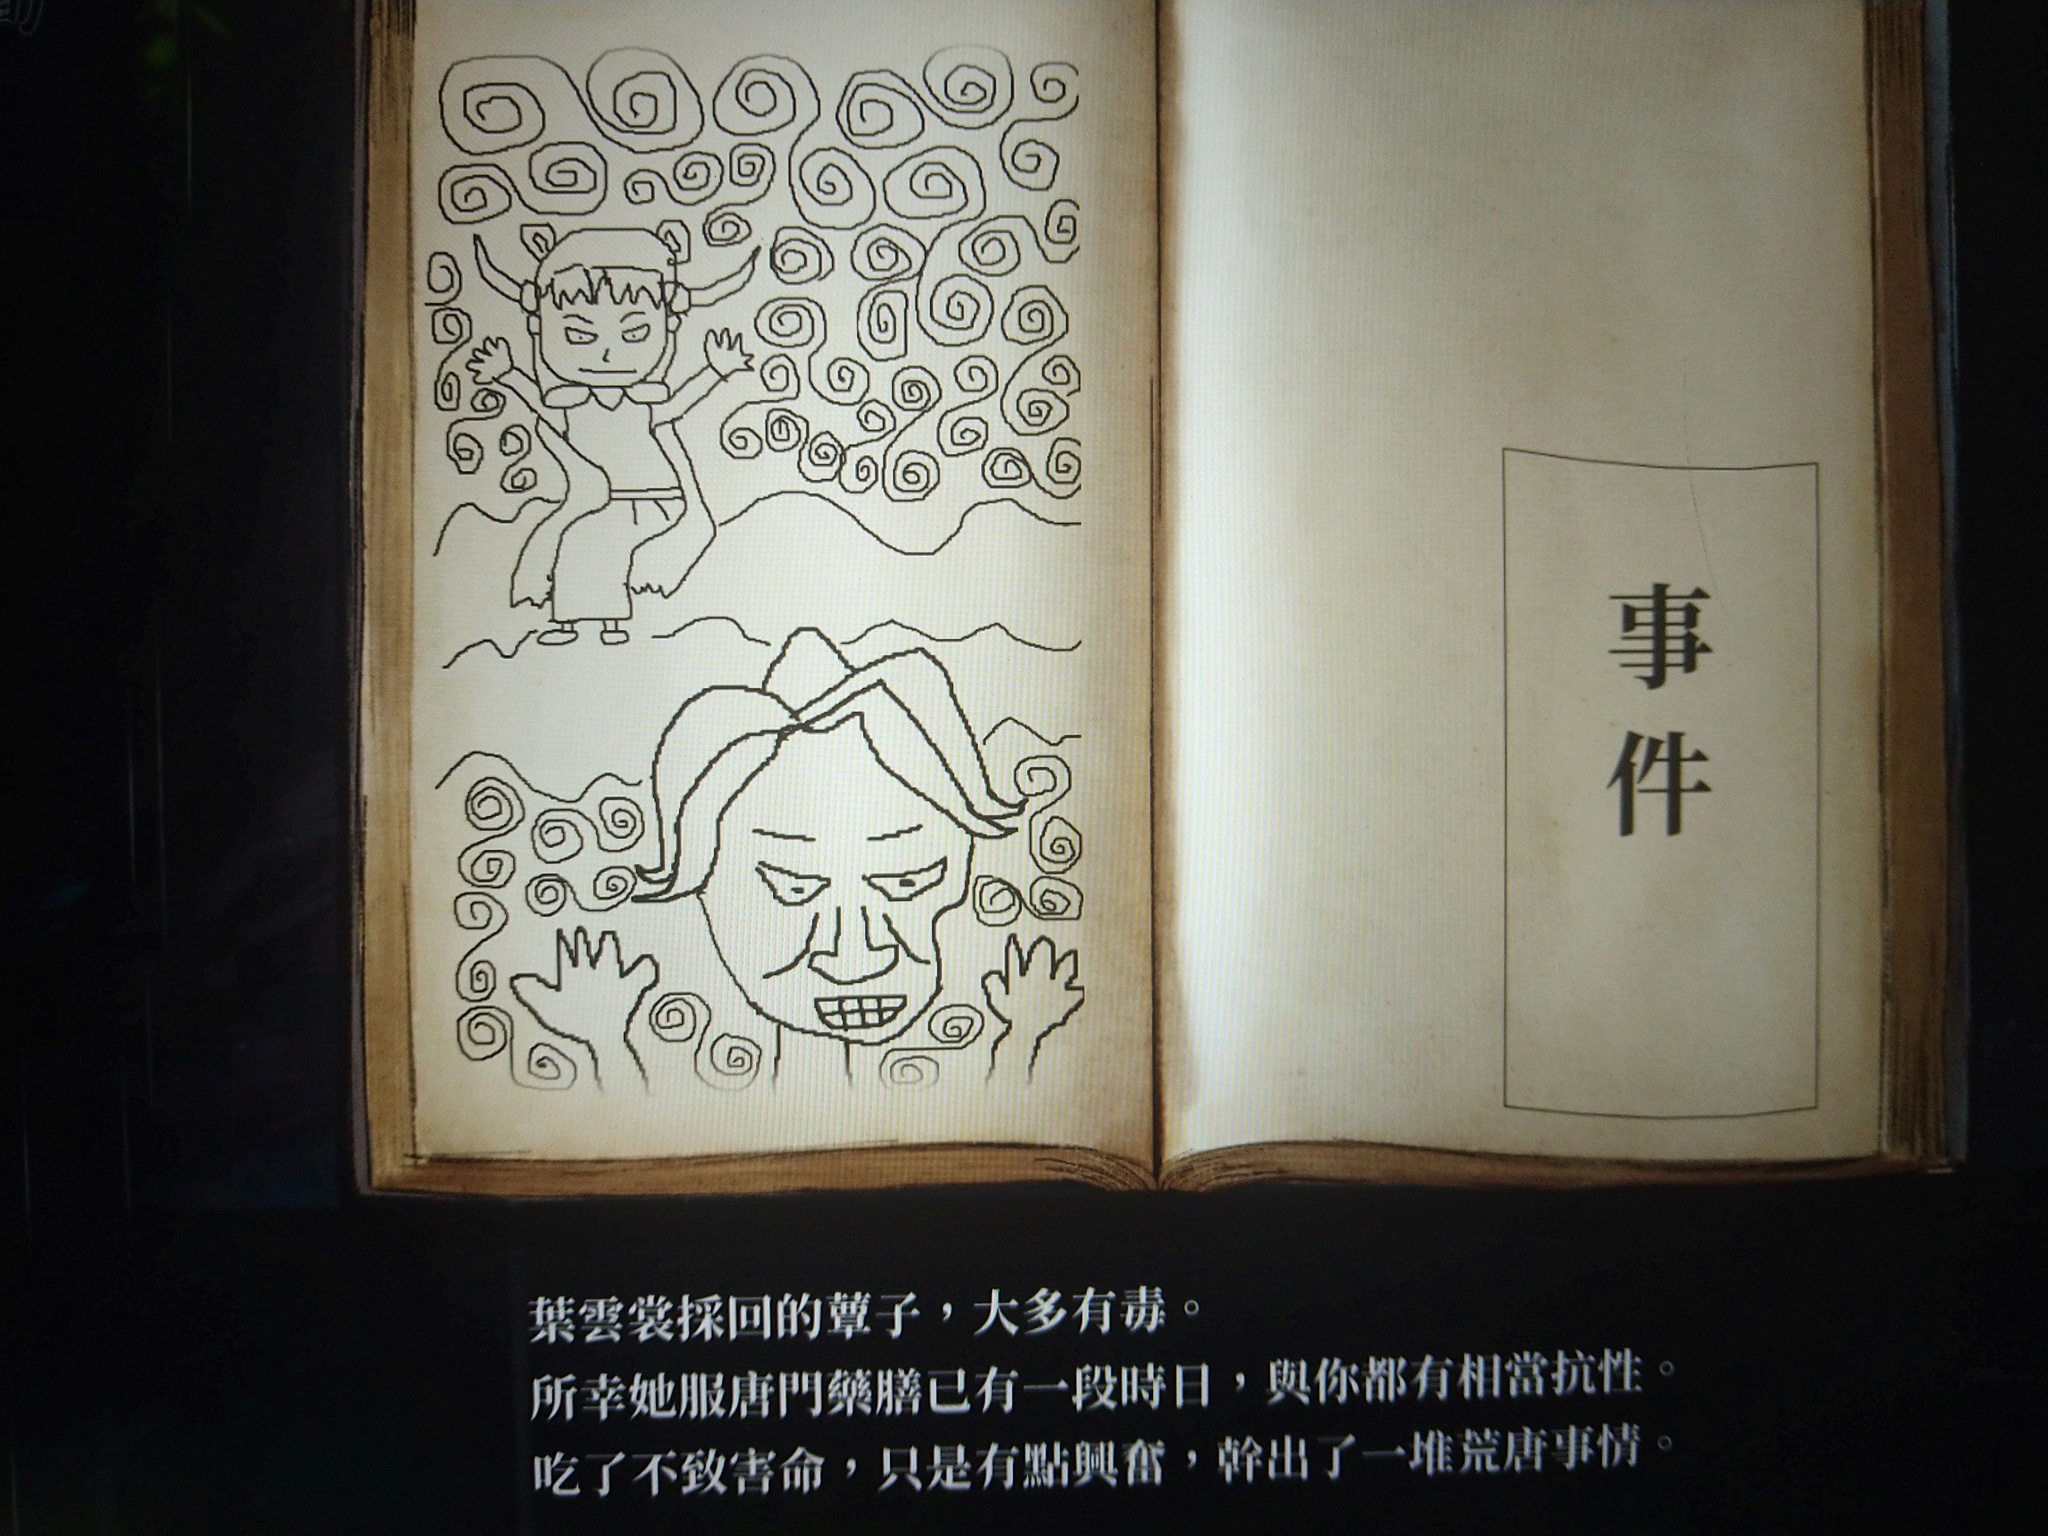 事件
葉雲裳採回的蕈子，大多有毒。
所幸她服唐門藥膳已有一段時日，與你都有相當抗性。
吃了不致害命，只是有點興奮，幹出了一堆荒唐事情。